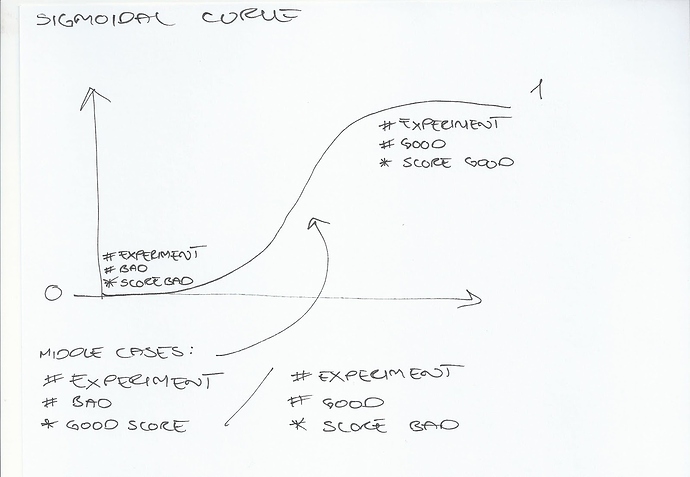 SIGMOIDAL CURVE
1
# EXPERIMENT
# GOOD
* SCORE GOOD
# EXPERIMENT
# BAD
* SCORE BAD
0
MIDDLE CASES:
# EXPERIMENT
# BAD
* GOOD SCORE
/
# EXPERIMENT
# GOOD
* SCORE BAD